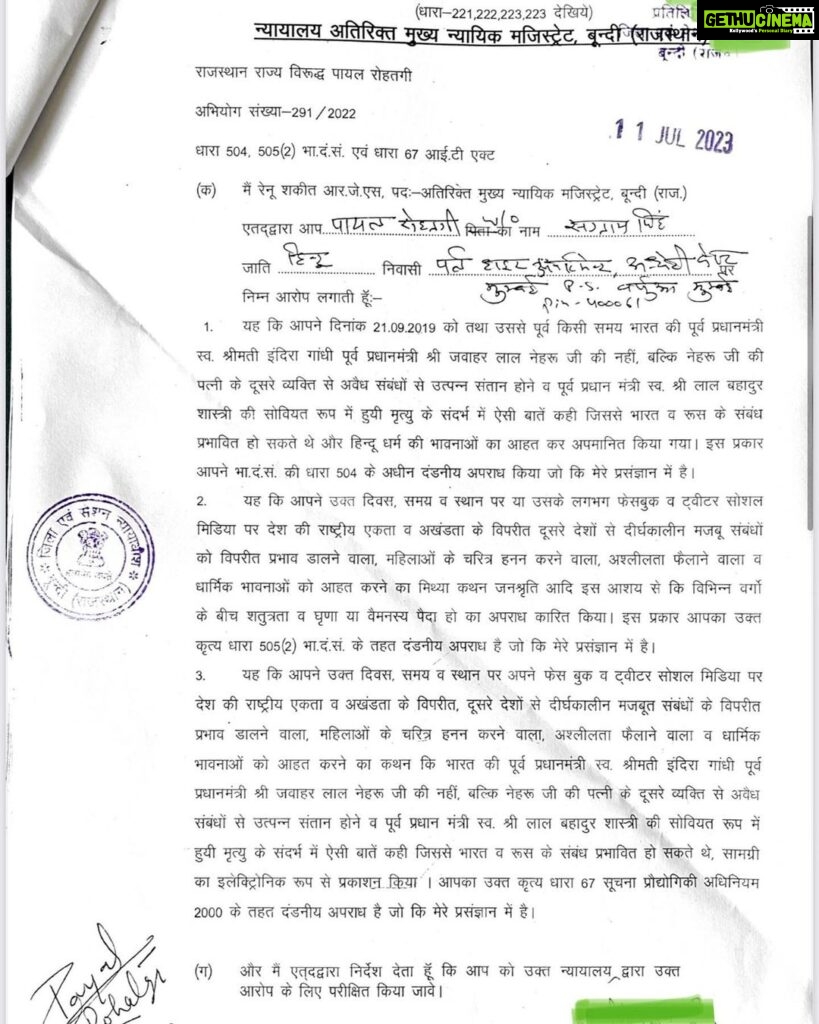 (धारा-221,222,223,223 देखिये)
GETHU CINEMA
Kollywood's Personal Diary
न्यायालय अतिरिक्त मुख्य न्यायिक मजिस्ट्रेट, बून्दी (राजस्थान)
राजस्थान राज्य विरूद्ध पायल रोहतगी
अभियोग संख्या-291/2022
11 JUL 2023
धारा 504, 505(2) भा.दं.सं. एवं धारा 67 आई.टी एक्ट
(क) मैं रेनू शकीत आर.जे.एस, पदः-अतिरिक्त मुख्य न्यायिक मजिस्ट्रेट, बून्दी (राज.)
एतद्द्वारा आप पायल रोहतगी पिता का w/o नाम संग्राम सिंह
जाति हिन्दू निवासी पर
मुम्बई P.S. मुम्बई
निम्न आरोप लगाती हूँ:-
Pin-400061
1. यह कि आपने दिनांक 21.09.2019 को तथा उससे पूर्व किसी समय भारत की पूर्व प्रधानमंत्री
स्व. श्रीमती इंदिरा गांधी पूर्व प्रधानमंत्री श्री जवाहर लाल नेहरू जी की नहीं, बल्कि नेहरू जी की
पत्नी के दूसरे व्यक्ति से अवैध संबंधों से उत्पन्न संतान होने व पूर्व प्रधान मंत्री स्व. श्री लाल बहादुर
शास्त्री की सोवियत रूप में हुयी मृत्यु के संदर्भ में ऐसी बातें कही जिससे भारत व रूस के संबंध
प्रभावित हो सकते थे और हिन्दू धर्म की भावनाओं का आहत कर अपमानित किया गया। इस प्रकार
आपने भा.दं.सं. की धारा 504 के अधीन दंडनीय अपराध किया जो कि मेरे प्रसंज्ञान में है।
2. यह कि आपने उक्त दिवस, समय व स्थान पर या उसके लगभग फेसबुक व ट्वीटर सोशल
मिडिया पर देश की राष्ट्रीय एकता व अखंडता के विपरीत दूसरे देशों से दीर्घकालीन मजबू संबंधों
को विपरीत प्रभाव डालने वाला, महिलाओं के चरित्र हनन करने वाला, अश्लीलता फैलाने वाला व
धार्मिक भावनाओं को आहत करने का मिथ्या कथन जनश्रृति आदि इस आशय से कि विभिन्न वर्गो
के बीच शतुत्रता व घृणा या वैमनस्य पैदा हो का अपराध कारित किया। इस प्रकार आपका उक्त
कृत्य धारा 505(2) भा.दं.सं. के तहत दंडनीय अपराध है जो कि मेरे प्रसंज्ञान में है।
जिला एवं सेशन न्यायाधीश
बून्दी (राजस्थान)
3. यह कि आपने उक्त दिवस, समय व स्थान पर अपने फेस बुक व ट्वीटर सोशल मिडिया पर
देश की राष्ट्रीय एकता व अखंडता के विपरीत, दूसरे देशों से दीर्घकालीन मजबूत संबंधों के विपरीत
प्रभाव डालने वाला, महिलाओं के चरित्र हनन करने वाला, अश्लीलता फैलाने वाला व धार्मिक
भावनाओं को आहत करने का कथन कि भारत की पूर्व प्रधानमंत्री स्व. श्रीमती इंदिरा गांधी पूर्व
प्रधानमंत्री श्री जवाहर लाल नेहरू जी की नहीं, बल्कि नेहरू जी की पत्नी के दूसरे व्यक्ति से अवैध
संबंधों से उत्पन्न संतान होने व पूर्व प्रधान मंत्री स्व. श्री लाल बहादुर शास्त्री की सोवियत रूप में
हुयी मृत्यु के संदर्भ में ऐसी बातें कही जिससे भारत व रूस के संबंध प्रभावित हो सकते थे, सामग्री
का इलेक्ट्रिोनिक रूप से प्रकाशन किया । आपका उक्त कृत्य धारा 67 सूचना प्रौद्योगिकी अधिनियम
2000 के तहत दंडनीय अपराध है जो कि मेरे प्रसंज्ञान में है।
(ग) और मैं एतद्द्वारा निर्देश देता हूँ कि आप को उक्त न्यायालय द्वारा उक्त
आरोप के लिए परीक्षित किया जावे।
Payal
Rohatgi